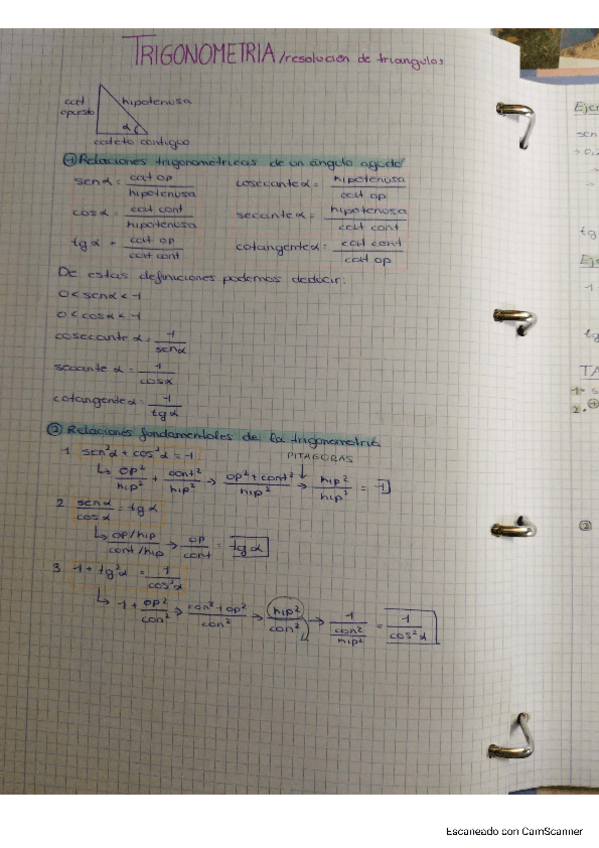 TRIGONOMETRIA / resolución de triangulos
cat opuesto
hipotenusa
α
cateto contiguo
① Relaciones trigonometricas de un ángulo agudo
sen α = cat op / hipotenusa   cosecante α = hipotenusa / cat op
cos α = cat cont / hipotenusa   secante α = hipotenusa / cat cont
tg α = cat op / cat cont   cotangente α = cat cont / cat op
De estas definiciones podemos deducir:
0 < sen α < 1
0 < cos α < 1
cosecante α = 1 / sen α
secante α = 1 / cos α
cotangente α = 1 / tg α
② Relaciones fundamentales de la trigonometria
1 sen²α + cos²α = 1
PITAGORAS
↳ op²/hip² + cont²/hip² → op² + cont²/hip² → hip²/hip² = 1
2 sen α / cos α = tg α
↳ op/hip / cont/hip → op/cont = tg α
3 1 + tg²α = 1 / cos²α
↳ 1 + op²/con² → con² + op²/con² → hip²/con² → 1 / con²/hip² = 1/cos²α
sen
tg
1
tg
TA
1.
2.
②
Escaneado con CamScanner